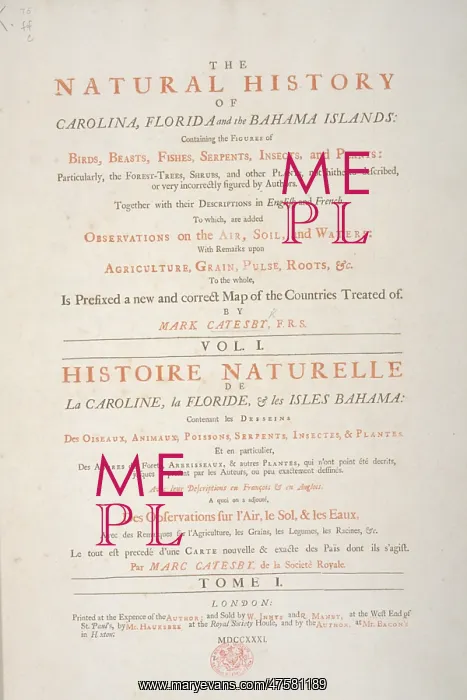 THE
NATURAL HISTORY
OF
CAROLINA, FLORIDA and the BAHAMA ISLANDS:
Containing the FIGURES of
BIRDS, BEASTS, FISHES, SERPENTS, INSECTS, and PLANTS:
Particularly, the FOREST-TREES, SHRUBS, and other PLANTS, not hitherto described,
or very incorrectly figured by Authors.
Together with their DESCRIPTIONS in English and French.
To which, are added
OBSERVATIONS on the AIR, SOIL, and WATERS:
With Remarks upon
AGRICULTURE, GRAIN, PULSE, ROOTS, &c.
To the whole,
Is Prefixed a new and correct Map of the Countries Treated of.
BY
MARK CATESBY, F.R.S.
VOL. I.
HISTOIRE NATURELLE
DE
La CAROLINE, la FLORIDE, & les ISLES BAHAMA:
Contenant les DESSEINS
Des OISEAUX, ANIMAUX, POISSONS, SERPENTS, INSECTES, & PLANTES.
Et en particulier,
Des Forets, ARBRISSEAUX, & autres PLANTES, qui n'ont point été decrits,
par les Auteurs, ou peu exactement dessinés.
Avec leur Descriptions en François & en Anglois.
A quoi on a adjouté,
Des Observations sur l'Air, le Sol, & les Eaux,
Avec des Remarques sur l'Agriculture, les Grains, les Legumes, les Racines, &c.
Le tout est precedé d'une CARTE nouvelle & exacte des Païs dont ils s'agist.
Par MARC CATESBY, de la Societé Royale.
TOME I.
LONDON:
Printed at the Expence of the AUTHOR; and Sold by W. INNYS and R. MANBY, at the West End of
St. Paul's, by Mr. HAUKSBEE at the Royal Society House, and by the AUTHOR, at Mr. BACON's
in Hoxton.
MDCCXXXI.
ME
PL
ME
PL
www.maryevans.com/47581189